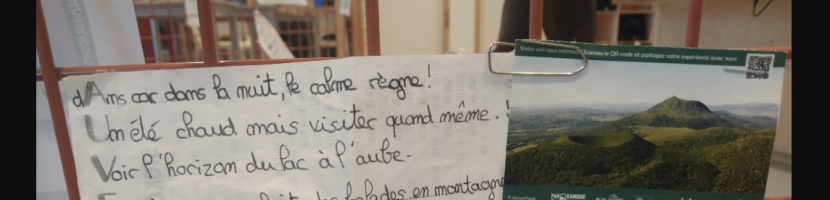 dAns car dans la nuit, le calme règne !
Un été chaud mais visiter quand même. !
Voir l'horizon du lac à l'aube.
balades en montagne
Votre avis nous intéresse Scannez le QR-code et partagez votre expérience avec nous